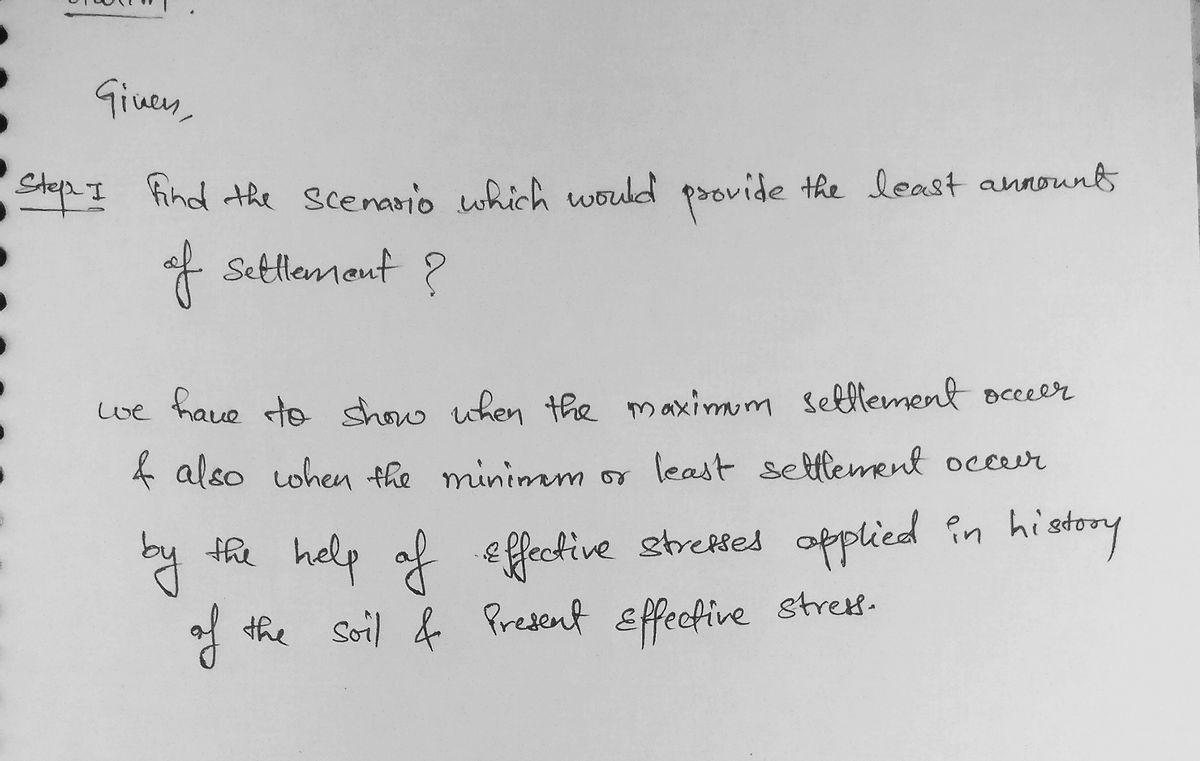 Given,
Step I Find the scenario which would provide the least amount
of settlement ?
we have to show when the maximum settlement occur
& also when the minimum or least settlement occur
by the help of effective stresses applied in history
of the soil & Present effective stress.